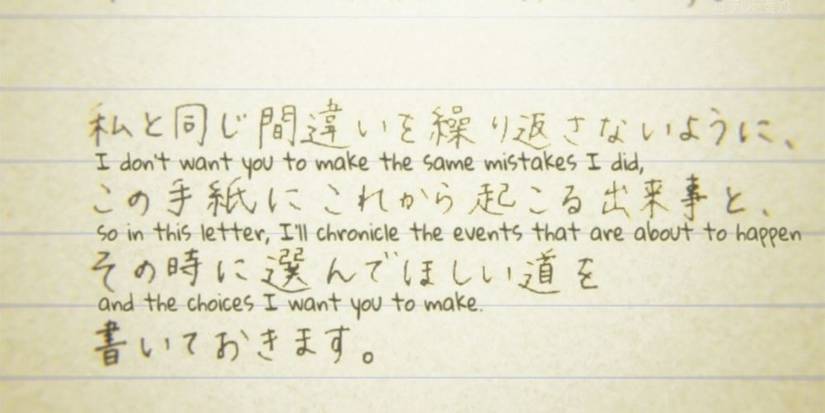 私と同じ間違いを繰り返さないように、
I don't want you to make the same mistakes I did,
この手紙にこれから起こる出来事と、
so in this letter, I'll chronicle the events that are about to happen
その時に選んでほしい道を
and the choices I want you to make.
書いておきます。